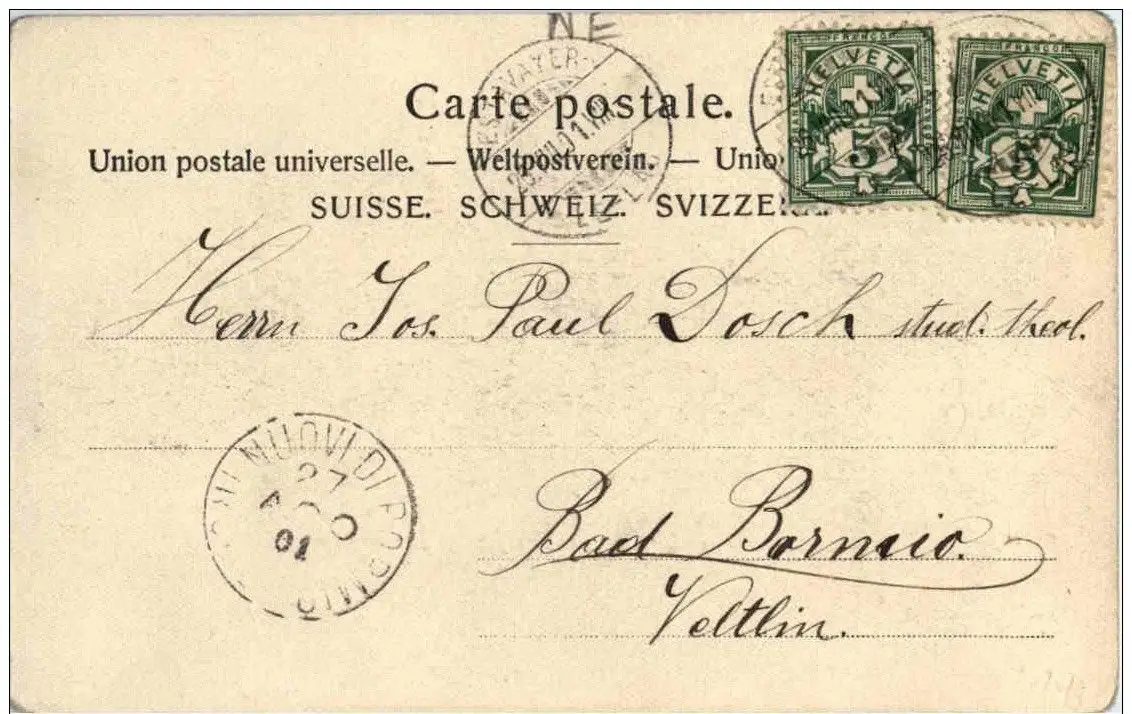 NE
Carte postale.
Union postale universelle. — Weltpostverein. — Unio
SUISSE. SCHWEIZ. SVIZZERA.
FRANCO
HELVETIA
5
FRANCO
HELVETIA
5
Herrn Jos. Paul Dosch stud. theol.
NUOVI DI BORMIO
27
01
Bad Bormio.
Veltlin.